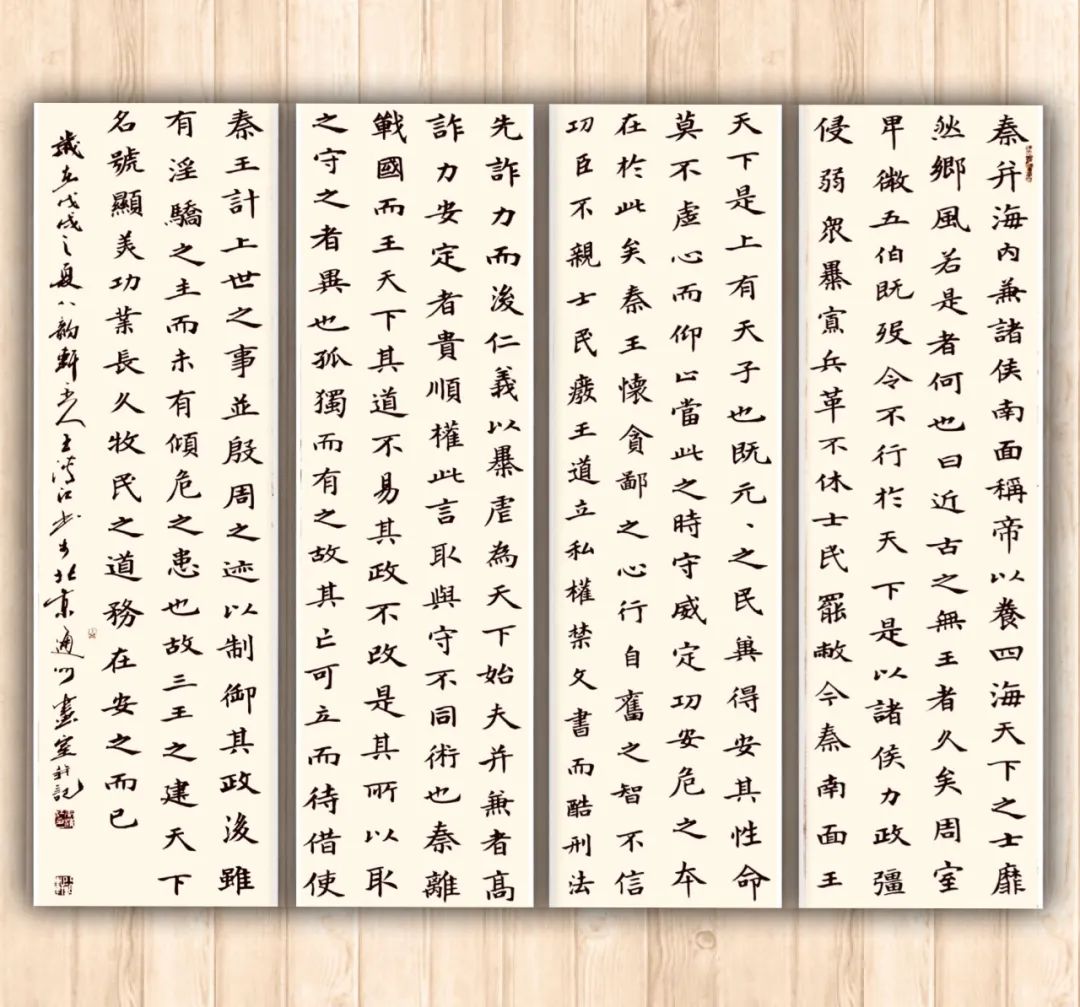 秦并海内兼諸侯南面稱帝以養四海天下之士靡
然鄉風若是者何也曰近古之無王者久矣周室
卑微五伯既殁令不行於天下是以諸侯力政彊
侵弱眾暴寡兵革不休士民罷敝今秦南面王
天下是上有天子也既元、之民冀得安其性命
莫不虛心而仰上當此之時守威定功安危之本
在於此矣秦王懷貪鄙之心行自奮之智不信
功臣不親士民廢王道立私權禁文書而酷刑法
先詐力而後仁義以暴虐為天下始夫并兼者高
詐力安定者貴順權此言取與守不同術也秦離
戰國而王天下其道不易其政不改是其所以取
之守之者異也孤獨而有之故其亡可立而待借使
秦王計上世之事並殷周之迹以制御其政後雖
有淫驕之主而未有傾危之患也故三王之建天下
名號顯美功業長久牧民之道務在安之而已
歲在戊戌之夏八韵軒主人王江书于北京通州畫室并記